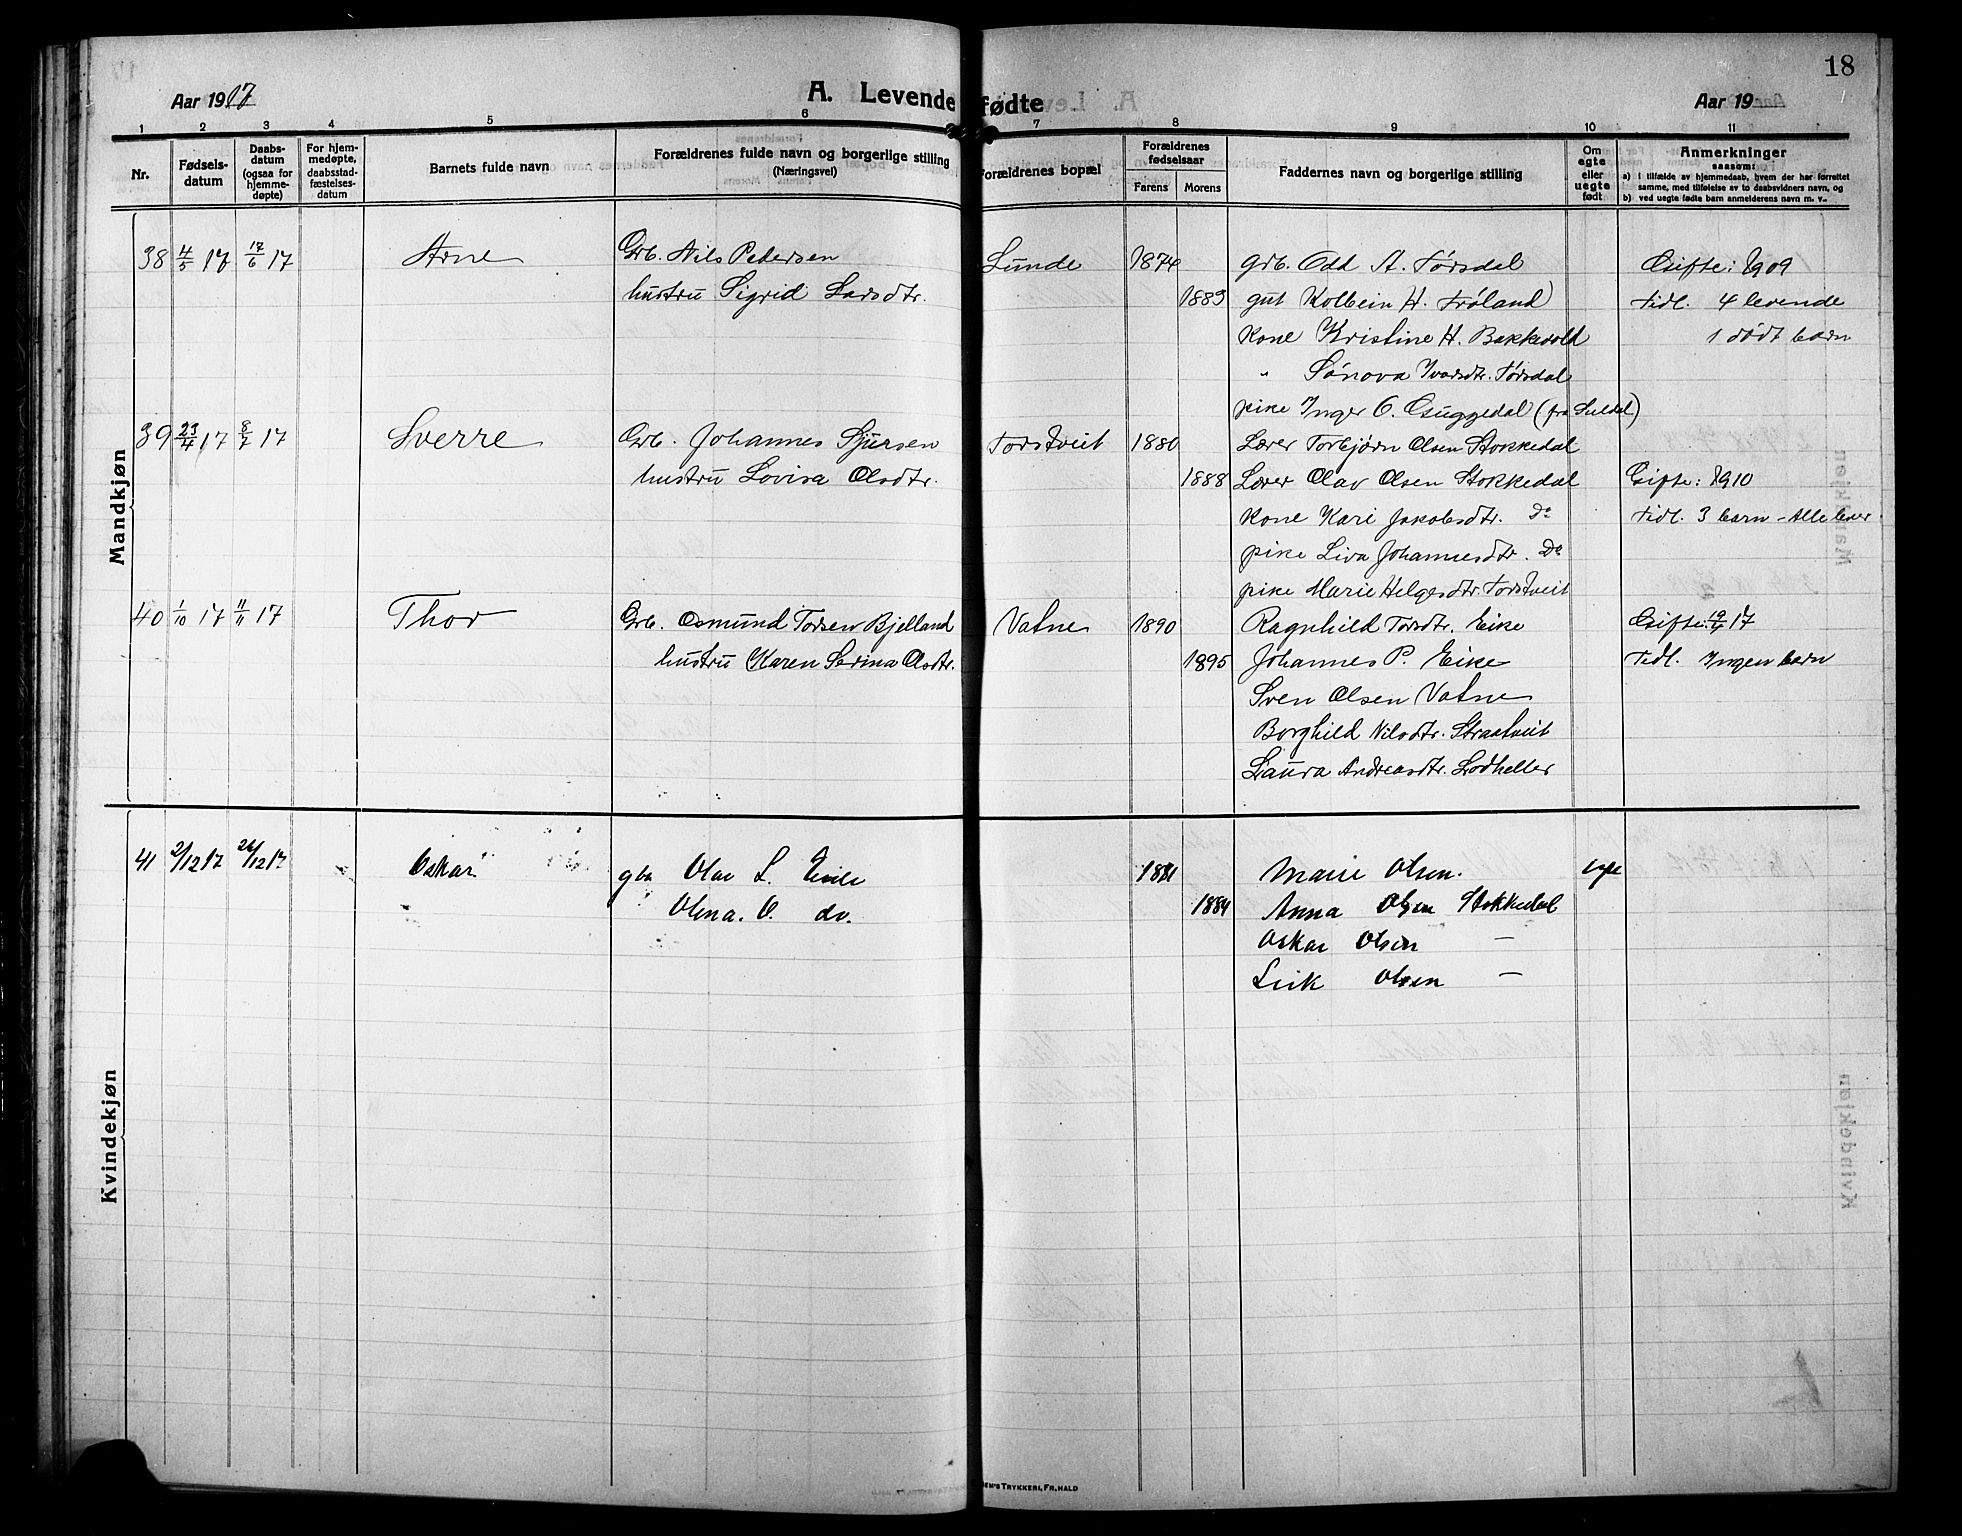 18
Aar 1917
A. Levendefødte
Aar 19
1 2 3 4 5 6 7 8 9 10 11
Nr.
Fødsels-
datum
Daabs-
datum
(ogsaa for
hjemme-
døpte)
For hjem-
medøpte,
daabsstad-
fæstelses-
datum
Barnets fulde navn
Forældrenes fulde navn og borgerlige stilling
(Næringsvei)
Forældrenes bopæl
Forældrenes
fødselsaar
Farens Morens
Faddernes navn og borgerlige stilling
Om
egte
eller
uegte
født
Anmerkninger
saasom:
a) i tilfælde av hjemmedaab, hvem der har forrettet
samme, med tilføielse av to daabsvidners navn, og
b) ved uegte fødte barn anmelderens navn m. v..
Mandkjøn
38 4/5 17 17/6 17 Arne Grb. Nils Pedersen Lunde 1874 grb. Odd A. Tørsdal Gifte: 1909
hustru Sigrid Larsdtr. 1883 gut Kolbein H. Frøland Tidl. 4 levende
kone Kristine H. Bakkevold 1 dødt barn
" Sønova Ivarsdtr. Tørsdal
pike Inger O. Guggedal (fra Suldal)
39 23/4 17 8/7 17 Sverre Grb. Johannes Sjursen Torstveit 1880 Lærer Torbjørn Olsen Stokkedal
hustru Lovisa Olsdtr. 1888 Lærer Olav Olsen Stokkedal Gifte: 1910
kone Kari Jakobsdtr. Do Tidl. 3 barn - Alle lever
pike Liva Johannesdtr. Do
pike Marie Helgesdtr. Torstveit
40 1/10 17 11/11 17 Thor Grb. Osmund Torsen Bjelland Vatne 1890 Ragnhild Torsdtr. Eike Gifte: 17
hustru Karen Serina Olsdtr. 1895 Johannes P. Eike Tidl. Ingen barn
Sven Olsen Vatne
Borghild Nilsdtr. Straatveit
Laura Andreasdtr. Lodheller
Kvindekjøn
41 2/12 17 26/12 17 Oskar gbr Olav L. 1881 Marie Olsen.
Olena. O. do. 1884 Anna Olsen Stokkedal
Oskar Olsen —
Olsen —
SEN'S TRYKKERI, FR.HALD